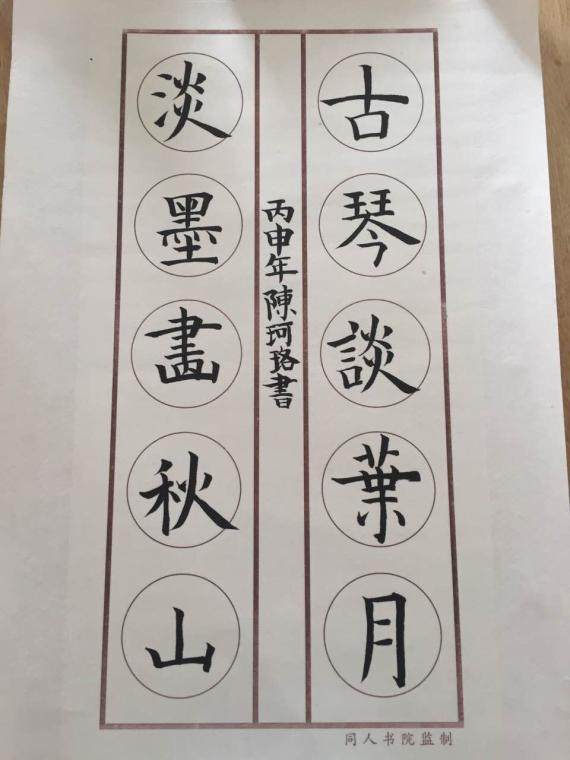 古琴談葉月
淡墨畫秋山
丙申年陳珂珞書
同人书院监制